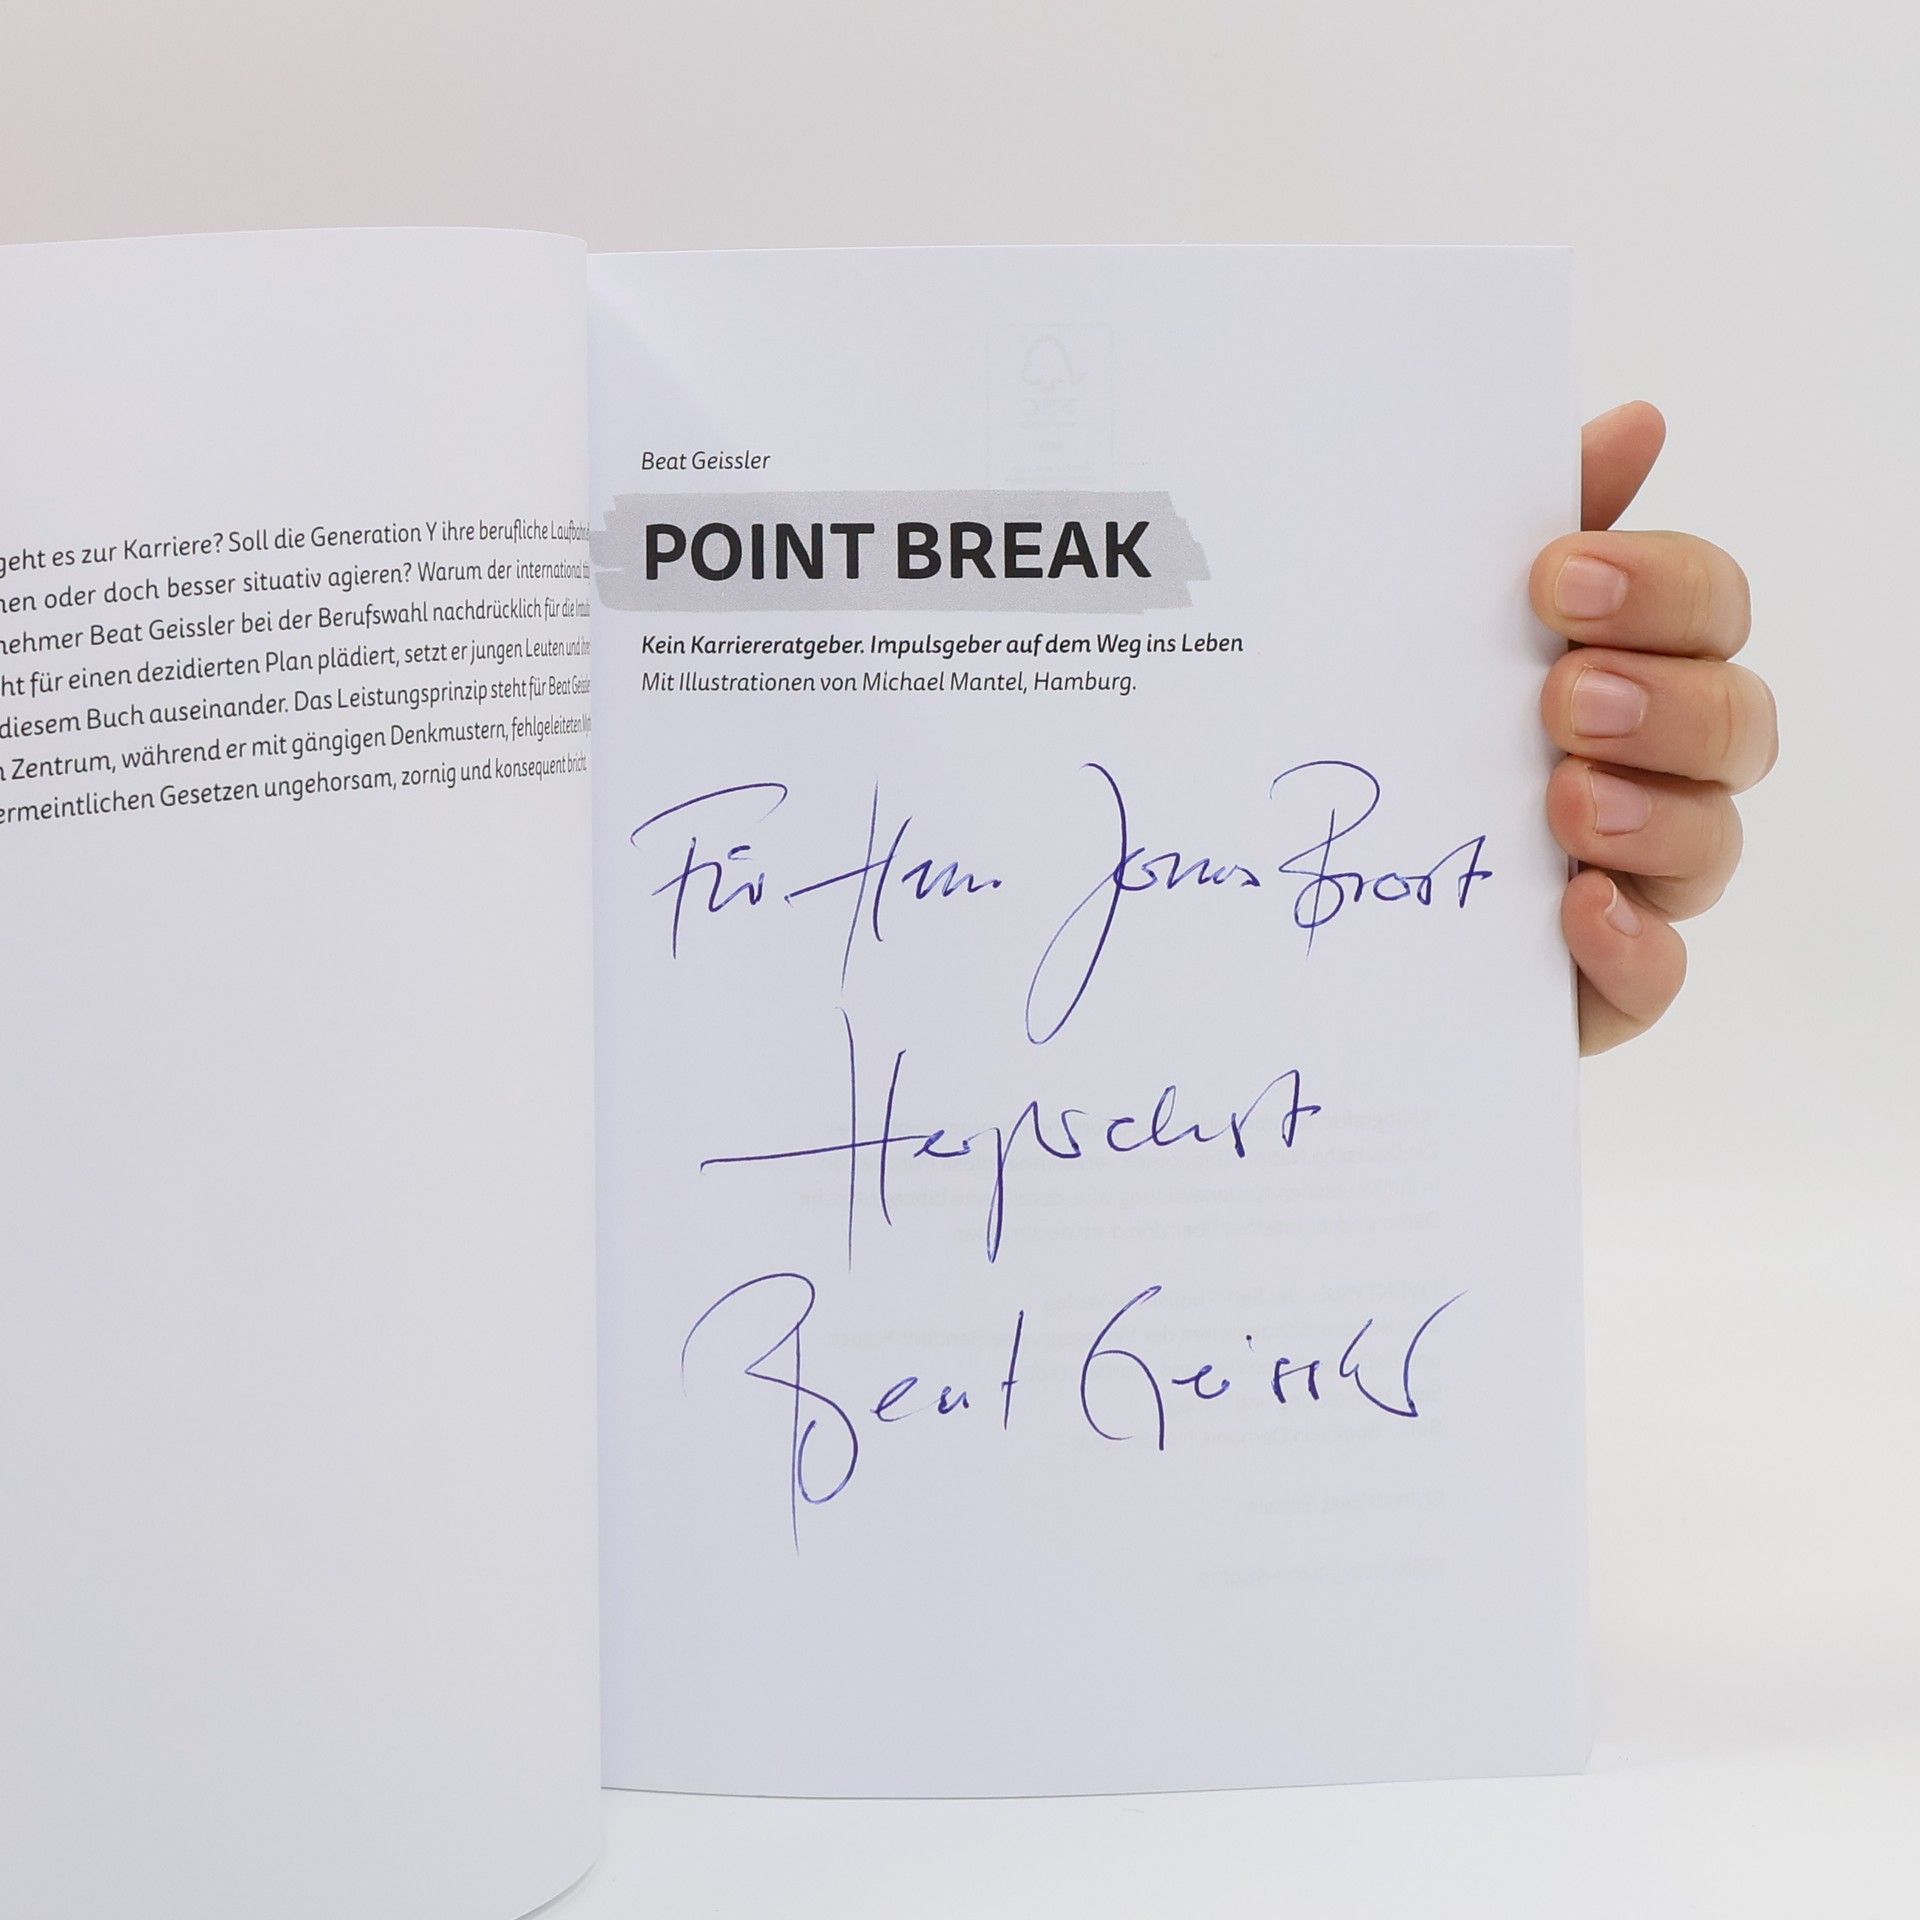 geht es zur Karriere? Soll die Generation Y ihre berufliche
oder doch besser situativ agieren? Warum der international
Beat Geissler bei der Berufswahl nachdrücklich für die
für einen dezidierten Plan plädiert, setzt er jungen Leuten und
diesem Buch auseinander. Das Leistungsprinzip steht für Beat
Zentrum, während er mit gängigen Denkmustern, fehlgeleiteten
ermeintlichen Gesetzen ungehorsam, zornig und konsequent bricht
Beat Geissler
POINT BREAK
Kein Karriereratgeber. Impulsgeber auf dem Weg ins Leben
Mit Illustrationen von Michael Mantel, Hamburg.
Für Herrn Jonas Brost
Herzlichst
Beat Geissler